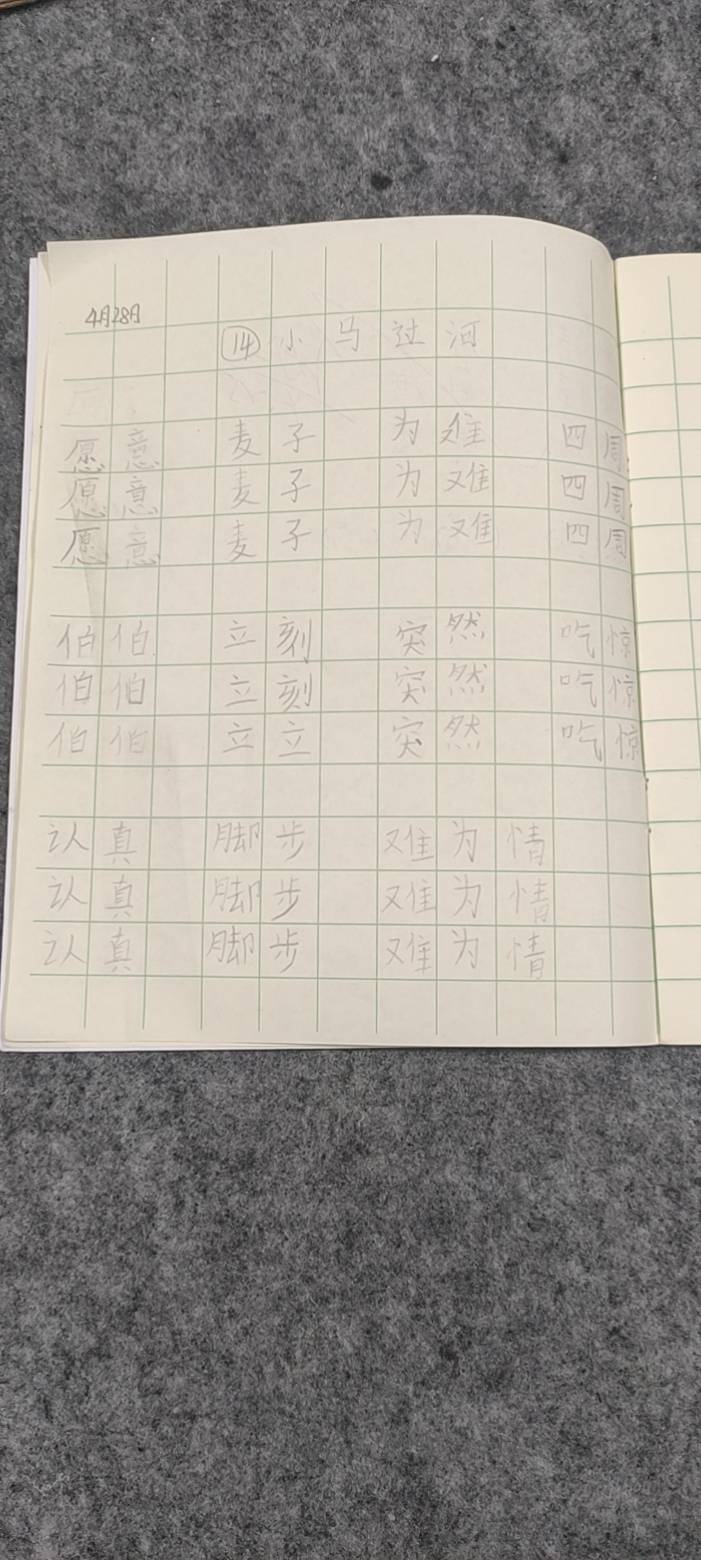 4月28日
⑭ 小马过河
愿意 麦子 为难 四周
愿意 麦子 为难 四周
愿意 麦子 为难 四周
伯伯 立刻 突然 吃惊
伯伯 立刻 突然 吃惊
伯伯 立立 突然 吃惊
认真 脚步 难为情
认真 脚步 难为情
认真 脚步 难为情